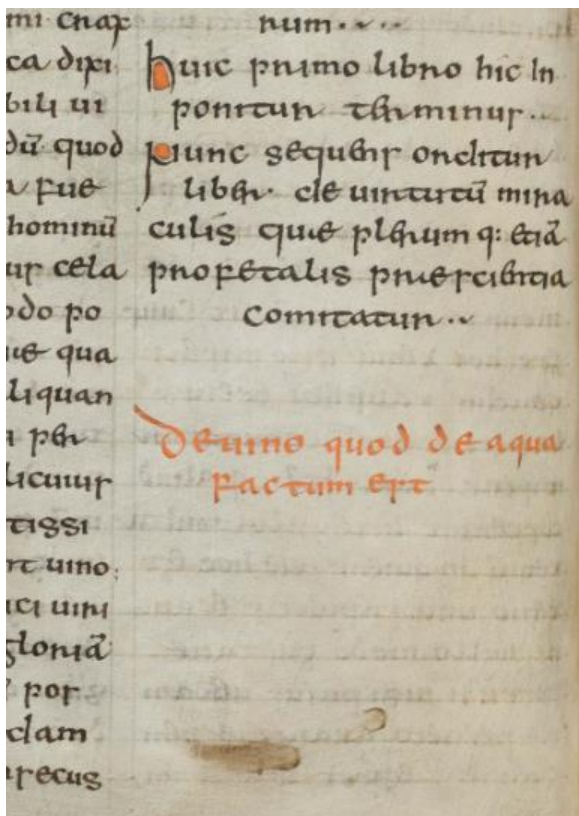 mi crax
ca dixi
bili ui
dũ quod
a fue
hominũ
us cela
odo po
qua
liquan
per
licuius
tissi
st uino
ici uiri
gloriã
pos
clam
secus
rum....
huic primo libro hic in
ponitur terminus..
Nunc sequens orditur
liber. de uirtutũ mira
culis quae plerumq: etiã
profetalis praescientia
comitatur..
De uino quod de aqua
factum est